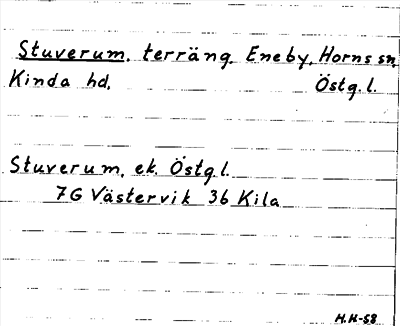 Stuverum, terräng, Eneby, Horns sn,
Kinda hd, Östg.l.
Stuverum, ek. Östg l.
7G Västervik 3b Kila
H.H-58